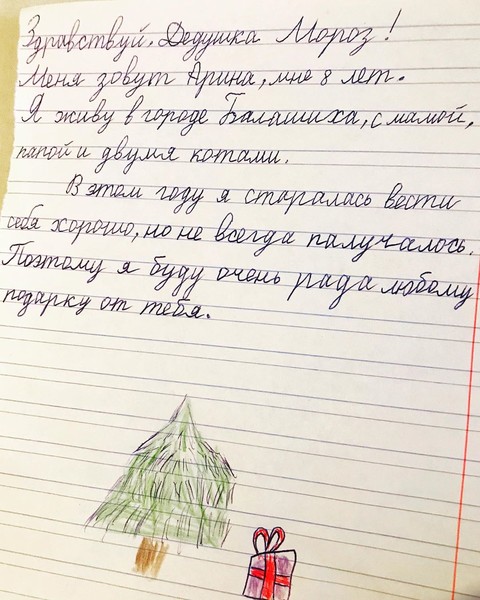 Здравствуй. Дедушка Мороз!
Меня зовут Арина, мне 8 лет.
Я живу в городе Балашиха, с мамой,
папой и двумя котами.
В этом году я старалась вести
себя хорошо, но не всегда палучалось.
Поэтому я буду очень рада любому
подарку от тебя.